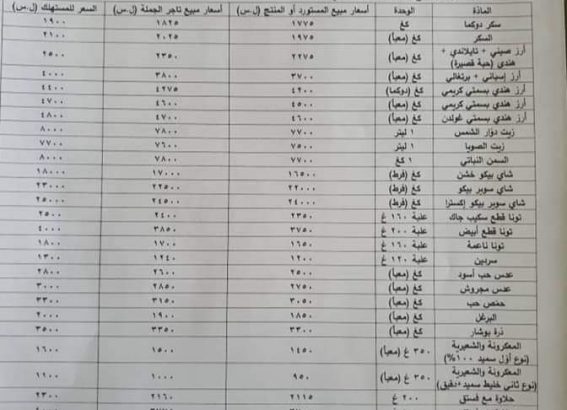 المادة الوحدة أسعار مبيع المستورد أو المنتج (ل.س) أسعار مبيع تاجر الجملة (ل.س) السعر للمستهلك (ل.س)
سكر دوكما كغ ١٧٧٥ ١٨٢٥ ١٩٠٠
السكر كغ (معبأ) ١٩٧٥ ٢٠٢٥ ٢١٠٠
أرز صيني + تايلاندي +
هندي (حبة قصيرة) كغ (معبأ) ٢٢٧٥ ٢٣٥٠ ٢٥٠٠
أرز إسباني + برتغالي كغ (معبأ) ٣٧٠٠ ٣٨٠٠ ٤٠٠٠
أرز هندي بسمتي كريمي كغ (دوكما) ٤٢٠٠ ٤٢٧٥ ٤٤٠٠
أرز هندي بسمتي كريمي كغ (معبأ) ٤٥٠٠ ٤٦٠٠ ٤٧٠٠
أرز هندي بسمتي غولدن كغ (معبأ) ٤٦٠٠ ٤٧٠٠ ٤٨٠٠
زيت دوّار الشمس ١ ليتر ٧٧٠٠ ٧٨٠٠ ٨٠٠٠
زيت الصويا ١ ليتر ٧٥٠٠ ٧٦٠٠ ٧٧٠٠
السمن النباتي ١ كغ ٧٧٠٠ ٧٨٠٠ ٨٠٠٠
شاي بيكو خشن كغ (فرط) ١٦٥٠٠ ١٧٠٠٠ ١٨٠٠٠
شاي سوبر بيكو كغ (فرط) ٢٢٠٠٠ ٢٢٥٠٠ ٢٣٠٠٠
شاي سوبر بيكو إكسترا كغ (فرط) ٢٤٠٠٠ ٢٤٥٠٠ ٢٥٠٠٠
تونا قطع سكيب جاك علبة ١٦٠ غ ٢٣٥٠ ٢٤٠٠ ٢٥٠٠
تونا قطع أبيض علبة ٢٠٠ غ ٣٧٥٠ ٣٨٥٠ ٤٠٠٠
تونا ناعمة علبة ١٦٠ غ ١٦٥٠ ١٧٠٠ ١٨٠٠
سردين علبة ١٢٠ غ ١٢٠٠ ١٢٤٠ ١٣٠٠
عدس حب أسود كغ (معبأ) ٢٥٠٠ ٢٦٠٠ ٢٨٠٠
عدس مجروش كغ (معبأ) ٢٧٥٠ ٢٨٥٠ ٣٠٠٠
حمص حب كغ (معبأ) ٣٠٥٠ ٣١٥٠ ٣٣٠٠
البرغل كغ (معبأ) ١٨٥٠ ١٩٠٠ ٢٠٠٠
ذرة بوشار كغ (معبأ) ٣٣٠٠ ٣٣٥٠ ٣٥٠٠
المعكرونة والشعيرية
(نوع أول سميد ١٠٠%) ٣٥٠ غ (معبأ) ١٤٥٠ ١٥٠٠ ١٦٠٠
المعكرونة والشعيرية
(نوع ثاني خليط سميد+دقيق) ٣٥٠ غ (معبأ) ٩٥٠ ١٠٠٠ ١١٠٠
حلاوة مع فستق ٢٠٠ غ ٢١١٥ ٢١٦٠ ٢٣٠٠